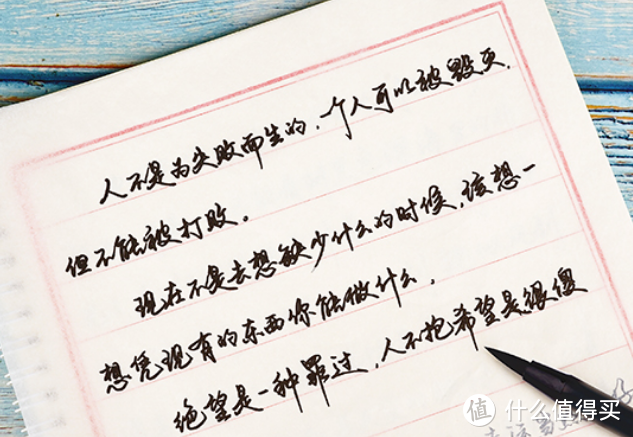 人不是为失败而生的,一个人可以被毁灭,
但不能被打败。
现在不是去想缺少什么的时候,该想一
想凭现有的东西你能做什么,
绝望是一种罪过,人不抱希望是很傻
值 什么值得买